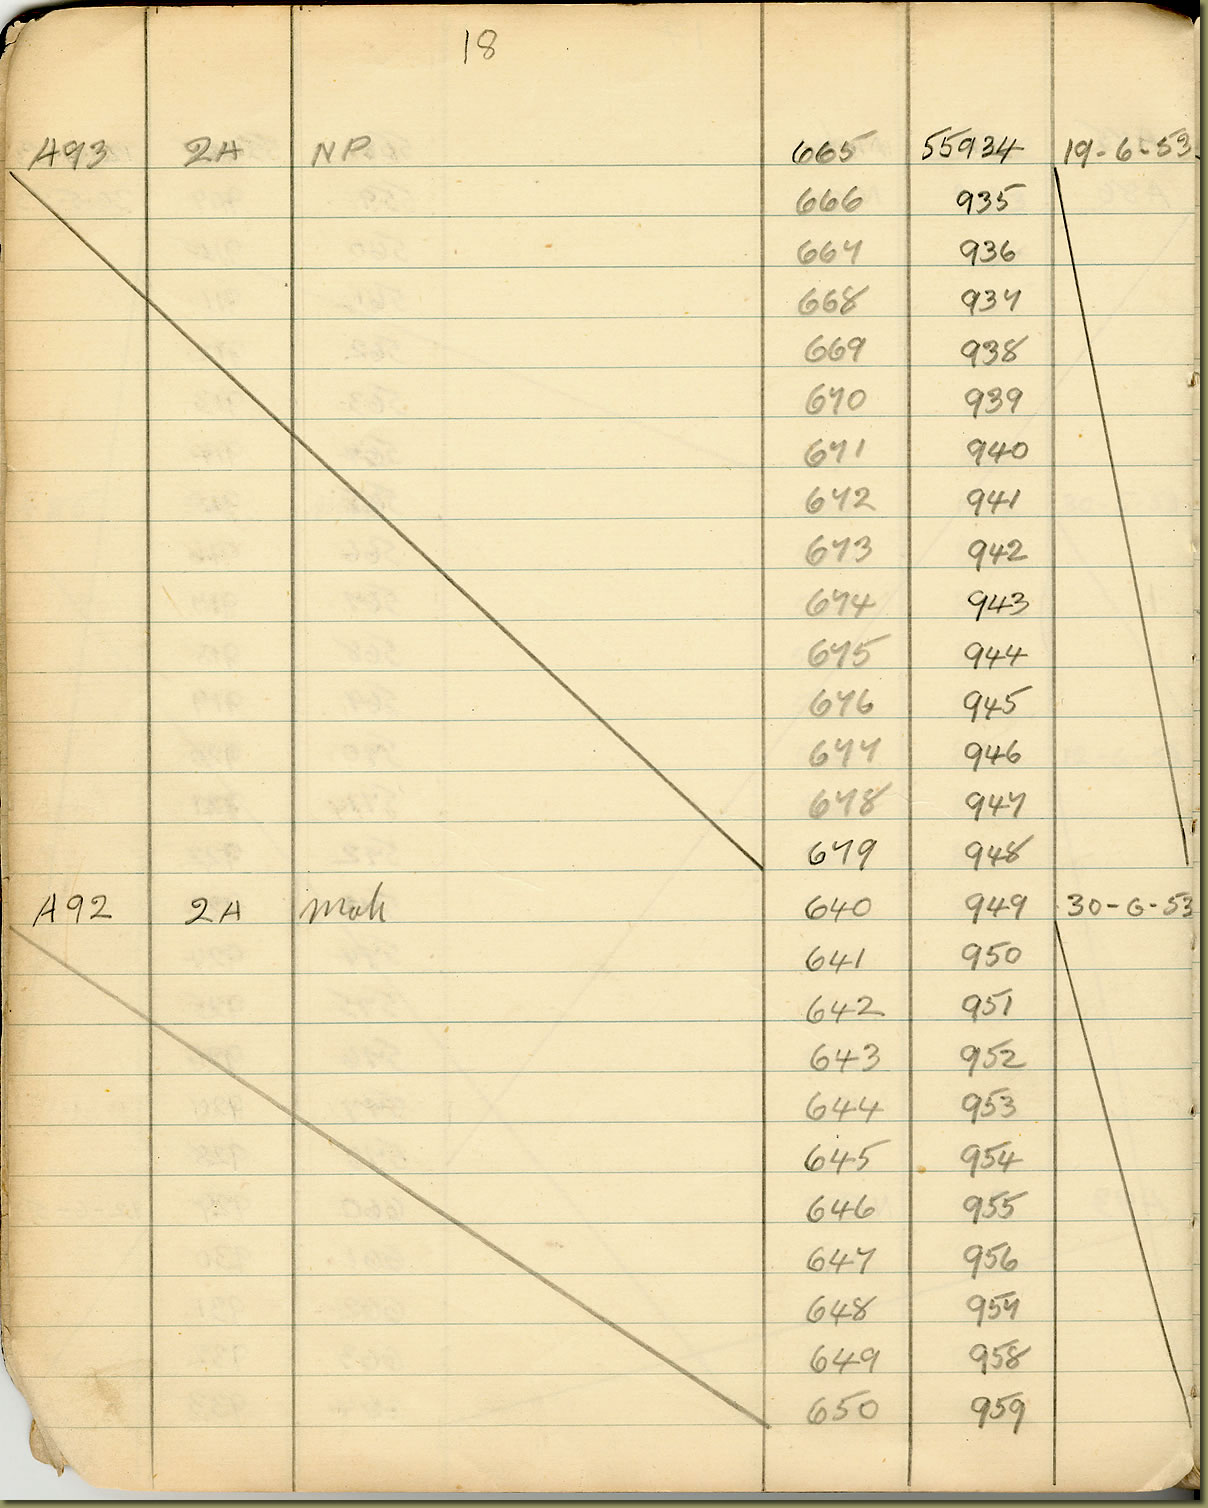 18
A93 2A NP 665 55934 19-6-53
666 935
667 936
668 937
669 938
670 939
671 940
672 941
673 942
674 943
675 944
676 945
677 946
678 947
679 948
A92 2A Mah 640 949 30-6-53
641 950
642 951
643 952
644 953
645 954
646 955
647 956
648 957
649 958
650 959